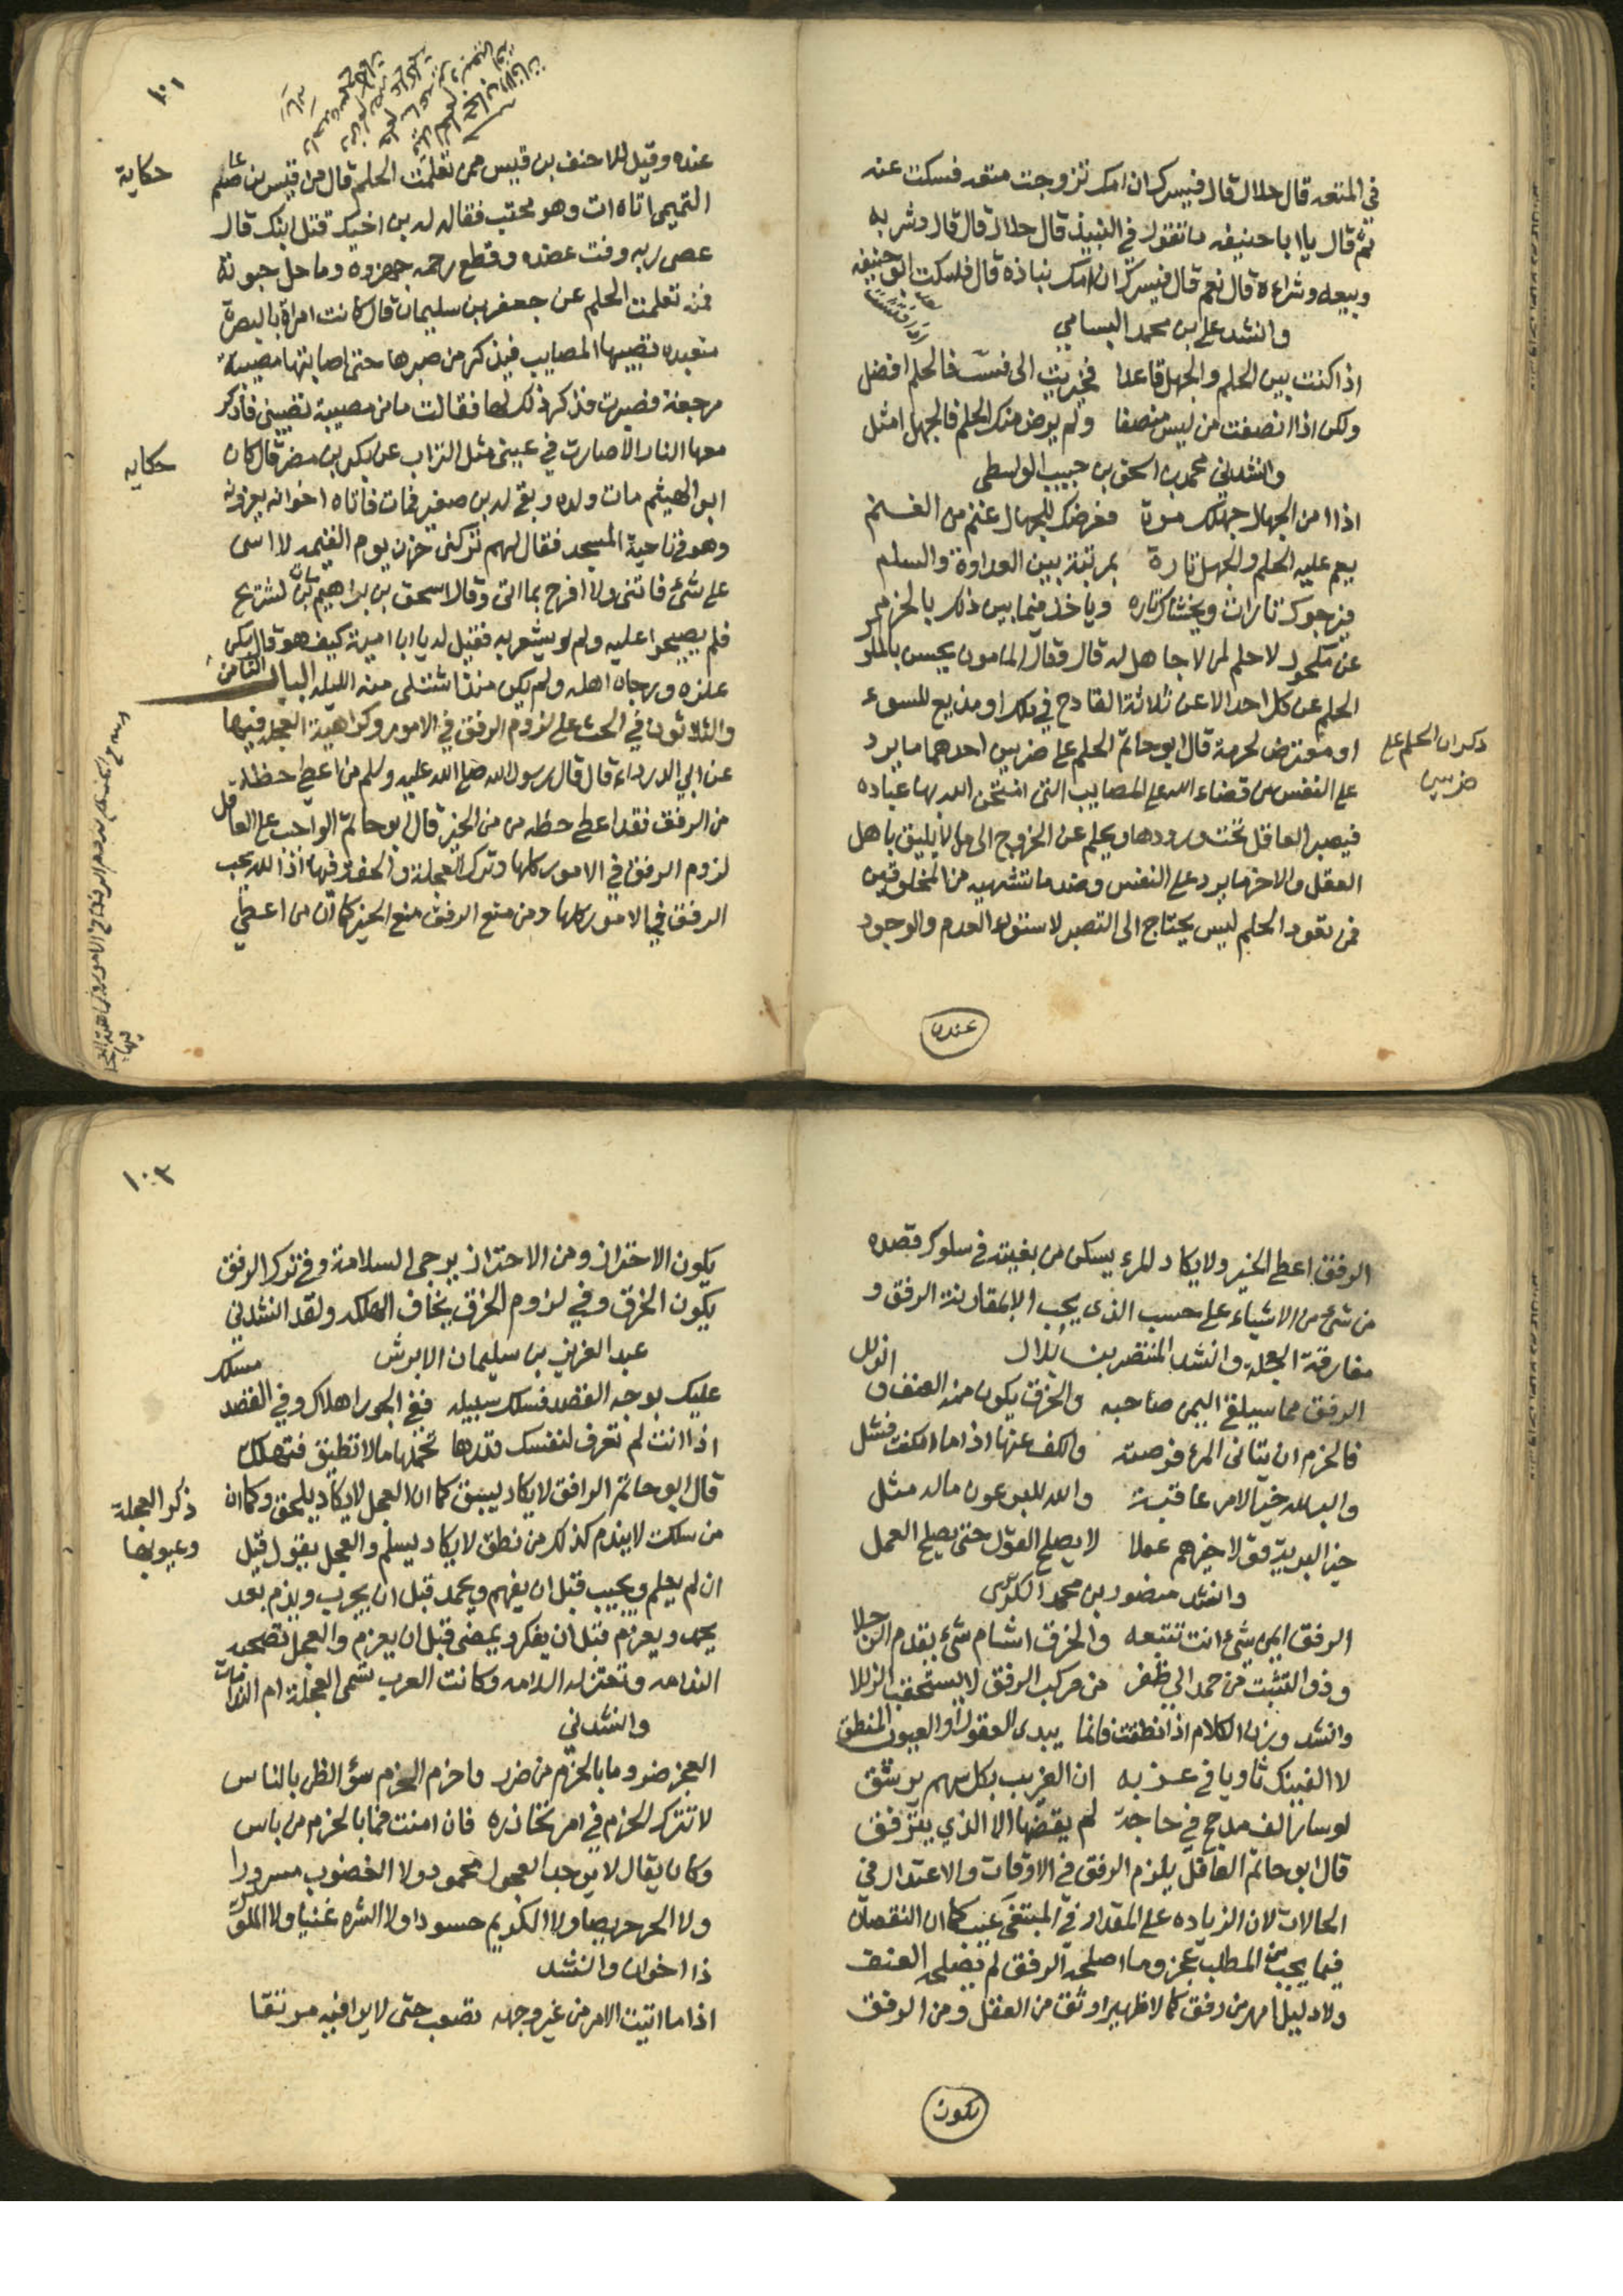 في المتعه قال حلال قال فيسرك ان امك تزوجت متعه فسكت عنه
ثم قال يا ابا حنيفه ما تقول في النبيذ قال حلال قال قال وشربه
وبيعه وشراءه قال نعم قال فيسرك ان امك نباذه قال فسكت ابو حنيفه
وانشد علي ابن محمد البسامي
اذا كنت بين الحلم والجهل قاعدا فخيرت انى شئت فالحلم افضل
ولكن اذا انصفت من ليس منصفا ولم يرض منك الحلم فالجهل امثل
وانشدني محمد بن اسحق بن حبيب الواسطي
اذا امن الجهال جهلك مرة فعرضك للجهال غنم من الغنم
يعم عليه الحلم والجهل تارة بمرتبة بين العداوة والسلم
فيرجوك تارات ويخشاك تاره وياخذ فيما بين ذلك بالحزم
لا حلم لمن لا جاهل له قال وقال المامون يحسن بالملوك
الحلم عن كل احد الا عن ثلاثة القادح في ملك او مذيع للسوء
او متعرض لحرمة قال ابو حاتم الحلم على ضربين احدهما ما يرد
على النفس من قضاء الله على المصايب التي امتحن الله بها عباده
فيصبر العاقل تحت ورودها ويحلم عن الخروج الى ما لا يليق باهل
العقل والاخر ما يرد على النفس وضد ما تشتهيه من المخلوقين
فمن تعود الحلم ليس يحتاج الى التصبر لاستواء العدم والوجود
ذكر ان الحلم على
ضربين
عنده
١٠١
عنده وقيل للاحنف بن قيس ممن تعلمت الحلم قال من قيس بن عاصم
التميمي اتاه ات وهو محتب فقال له بن اخيك قتل ابنك قال
عصى ربه وفت عضده وقطع رحمه جهزوه وما حل حبوته
فمنه تعلمت الحلم عن جعفر بن سليمان قال كانت امراة بالبصرة
متعبده تصيبها المصايب فيذكر من صبرها حتى اصابتها مصيبة
مرجعة فصبرت فذكر ذلك لها فقالت ما من مصيبة تصيبني فاذكر
معها النار الا صارت في عيني مثل التراب عن بكر بن مضر قال كان
ابو الهيثم مات ولده وبقي له بن صغير فمات فاتاه اخوانه يعزونه
وهو في ناحية المسجد فقال لهم تركني حزن يوم القيمه لا اسى
على شئ فاتني ولا افرح بما اتى وقال اسحق بن ابراهيم مات بن لشريح
فلم يصيحوا عليه ولم يشعر به فقيل له يا ابا امية كيف هو قال سكن
علزه ورجاه اهله ولم يكن منذ اشتكى منه الليله الباب الثامن
والثلاثون في الحث على لزوم الرفق في الامور وكراهية العجله فيها
عن ابي الدرداء قال قال رسول الله صلى الله عليه وسلم من اعطي حظه
من الرفق فقد اعطي حظه من من الخير قال ابو حاتم الواجب على العاقل
لزوم الرفق في الامور كلها وترك العجلة والخفة فيها اذ الله يحب
الرفق في الامور كلها ومن منع الرفق منع الخير كما ان من اعطي
حكاية
حكايه
الرفق اعطي الخير ولا يكاد المرء يسكن من بغيته في سلوك قصده
من شئ من الاشياء على حسب الذي يحب الا بمقارنة الرفق و
مفارقة العجلة وانشد المنتصر بن بلال
الرفق مما سيلقي اليمن صاحبه والخرق يكون منه العنف والزلل
فالحزم ان يتانى المرء فرصته والكف عنها اذا ما امكنت فشل
والبر لله خير الامر عاقبة والله للبر عون ماله مثل
خير البرية قولا خيرهم عملا لا يصلح القول حتى يصلح العمل
وانشد منصور بن محمد الكريزي
الرفق ايمن شئ انت تتبعه والخرق اشام شئ يقدم الرجلا
وذو التثبت من حمد الى ظفر من مركب الرفق لا يستحقب الزللا
وانشد وزن الكلام اذا نطقت فانما يبدي العقول او العيوب المنطق
لا الفينك ثاويا في غربه ان الغريب بكل سهم يرشق
لو سار الف مدجج في حاجة لم يقضها الا الذي يترفق
قال ابو حاتم العاقل يلزم الرفق في الاوقات والاعتدال في
الحالات لان الزياده على المقدار في المبتغى عيب كما ان النقصان
فيما يجب من المطلب عجز وما اصلحه الرفق لم يصلحه العنف
ولا دليل امهر من رفق كما لا ظهير اوثق من العقل ومن الرفق
يكون
١٠٢
يكون الاحتراز ومن الاحتراز يرجى السلامة وفي ترك الرفق
يكون الخرق وفي لزوم الخرق يخاف الهلكه ولقد انشدني
عبد العزيز بن سليمان الابرش
عليك بوجه القصد فسلك سبيله ففي الجور اهلاك وفي القصد مسلك
اذا انت لم تعرف لنفسك قدرها تحملها ما لا تطيق فتهلك
قال ابو حاتم الرافق لا يكاد يسبق كما ان العجل لا يكاد يلحق وكما ان
من سكت لا يندم كذلك من نطق لا يكاد يسلم والعجل يقول قبل
ان لم يعلم ويجيب قبل ان يفهم ويحمد قبل ان يجرب ويذم بعد
يحمد ويعزم قبل ان يفكر ويمضي قبل ان يعزم والعجل تصحبه
الندامه وتعتزله السلامه وكانت العرب تسمى العجلة ام الندامات
وانشدني
العجز ضر وما بالحزم من ضرر واحزم الحزم سؤ الظن بالناس
لا تترك الحزم في امر تحاذره فان امنت فما بالحزم من باس
وكان يقال لا يوجد العجول محمود ولا الغضوب مسرورا
ولا الحر حريصا ولا الكريم حسودا ولا الشره غنيا ولا الملول
ذا اخوان وانشد
اذا ما اتيت الامر من غير وجهه تصعب حتى لا يرا فيه مرتقا
ذكر العجلة
وعيوبها